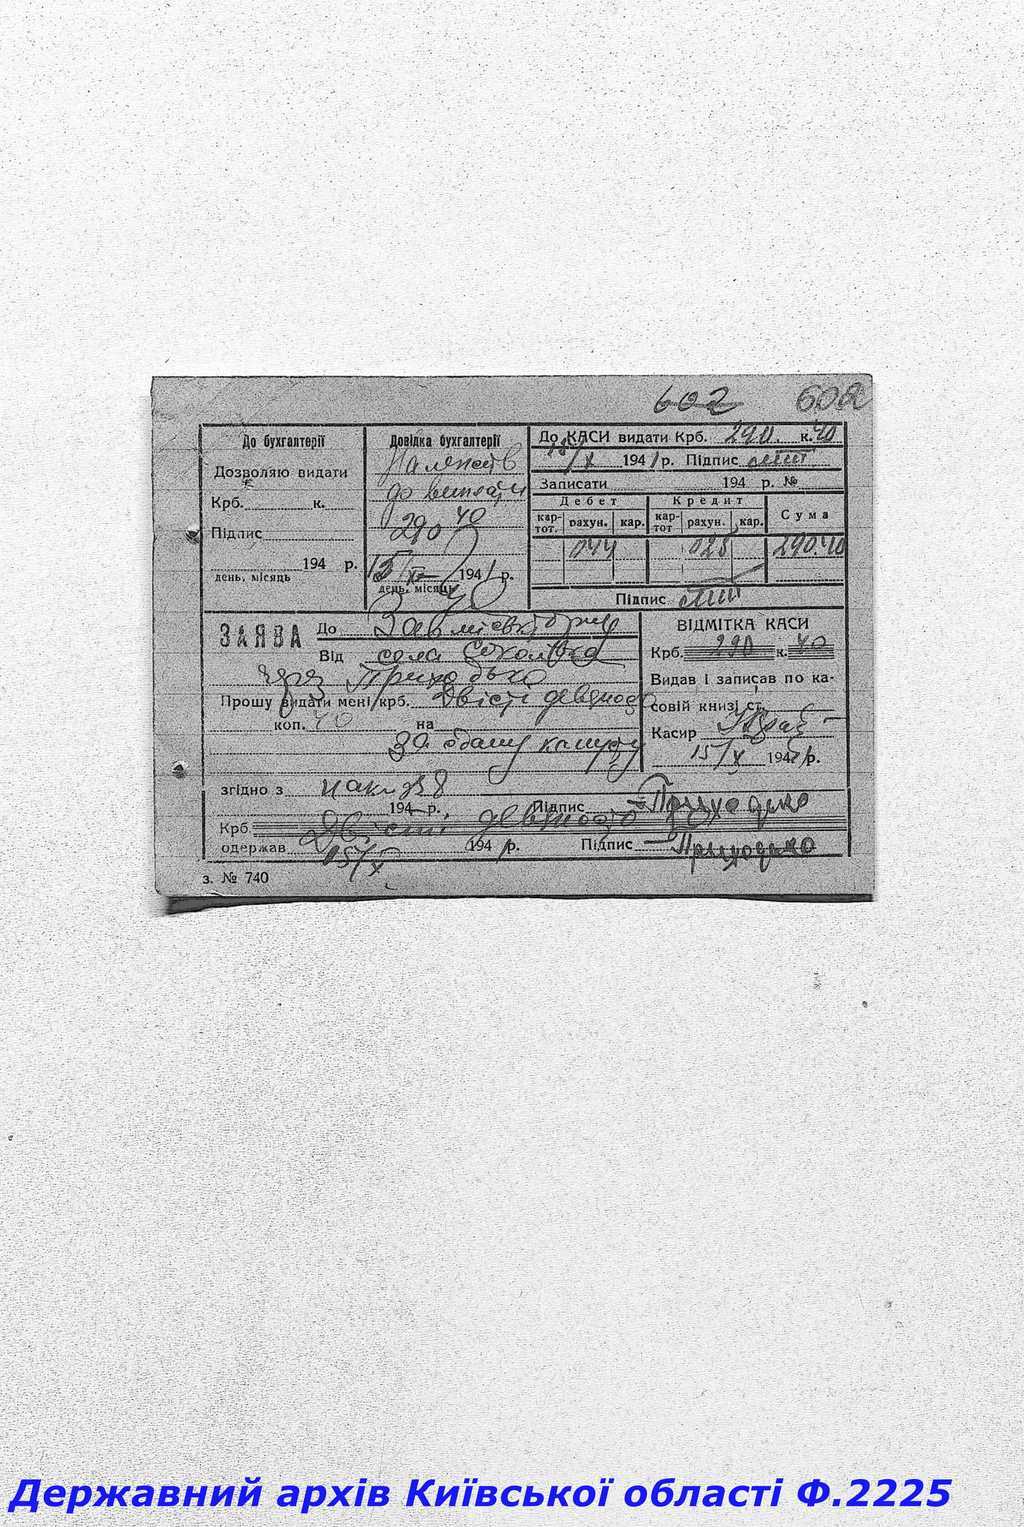 602 602
До бухгалтерії
Дозволяю видати
Крб. к.
Підпис
194 р.
день, місяць
Довідка бухгалтерії
Належить
до виплати
290 40
15/X 1941 р.
день, місяць
До КАСИ видати Крб. 290. к. 40
15/X 1941 р. Підпис
Записати 194 р. №
Дебет Кредит Сума
кар-тот. рахун. кар. кар-тот рахун. кар.
044 028 290.40
Підпис
ЗАЯВА До
Від села
через Приходько
Прошу видати мені крб. Двісті девяносто
коп. 40 на
за здану капусту
ВІДМІТКА КАСИ
Крб. 290 к. 40
Видав і записав по ка-
совій книзі ст.
Касир
15/X 1941 р.
згідно з
194 р. Підпис Приходько
Крб. Двісті девяносто
одержав 15/X 194 р. Підпис Приходько
з. № 740
Державний архів Київської області Ф.2225